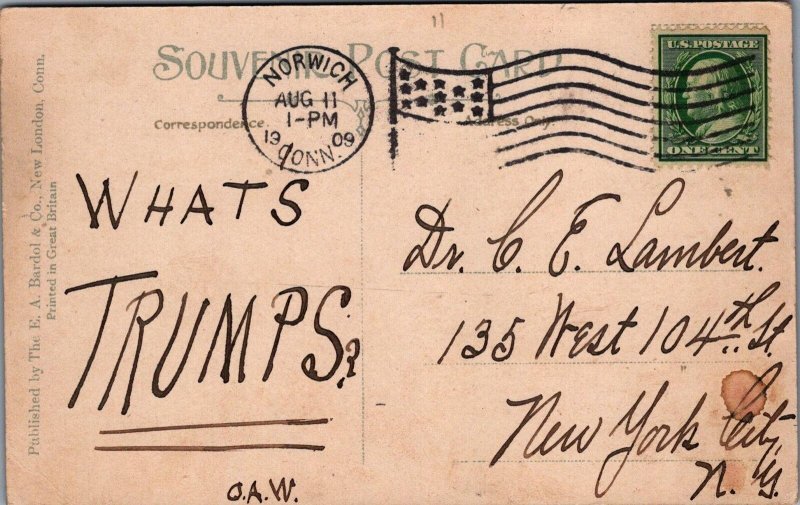 11
SOUVENIR POST CARD
NORWICH
AUG 11
1-PM
19 09
CONN.
U.S. POSTAGE
ONE CENT
Correspondence.
Address Only.
WHATS
TRUMPS?
O.A.W.
Dr. C. E. Lambert.
135 West 104th St.
New York City,
N. Y.
Published by The E. A. Bardol & Co., New London, Conn.
Printed in Great Britain